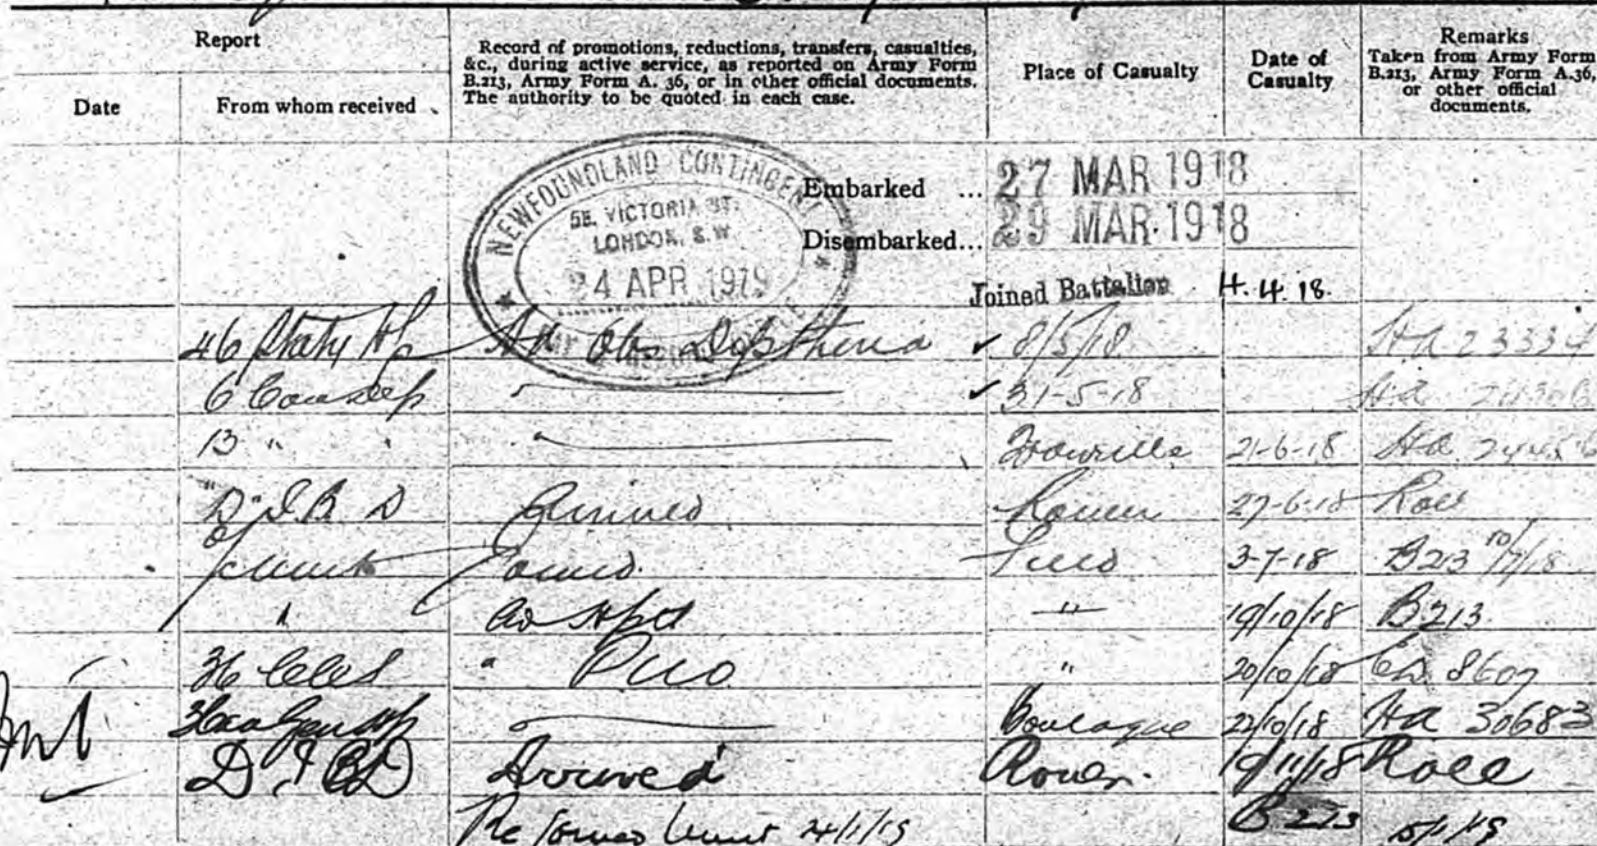 Report
Date
From whom received
Record of promotions, reductions, transfers, casualties,
&c., during active service, as reported on Army Form
B.213, Army Form A. 36, or in other official documents.
The authority to be quoted in each case.
Place of Casualty
Date of
Casualty
Remarks
Taken from Army Form
B.213, Army Form A.36,
or other official
documents.
NEWFOUNDLAND CONTINGENT
58, VICTORIA ST.
LONDON, S.W.
24 APR 1919
Embarked ... 27 MAR 1918
Disembarked... 29 MAR 1918
Joined Battalion 4.4.18.
46 Staty Hp Ad Obs Diphtheria ✓ 8/5/18 HA 23334
6 Con Dep " ✓ 31-5-18 HA
13 " " " Trouville 21-6-18 HA
"D" I.B.D Arrived Rouen 27-6-18 Roll
Unit Joined Field 3-7-18 B213 10/7/18
" Ad Hptl " 19/10/18 B213
36 CCS " PUO " 20/10/18 8607
Gen Hp " Boulogne 22/10/18 HA 30683
D I B D Arrived Rouen. 9/11/18 Roll
Re joined Unit 24/1/19 B 213 5/1/19